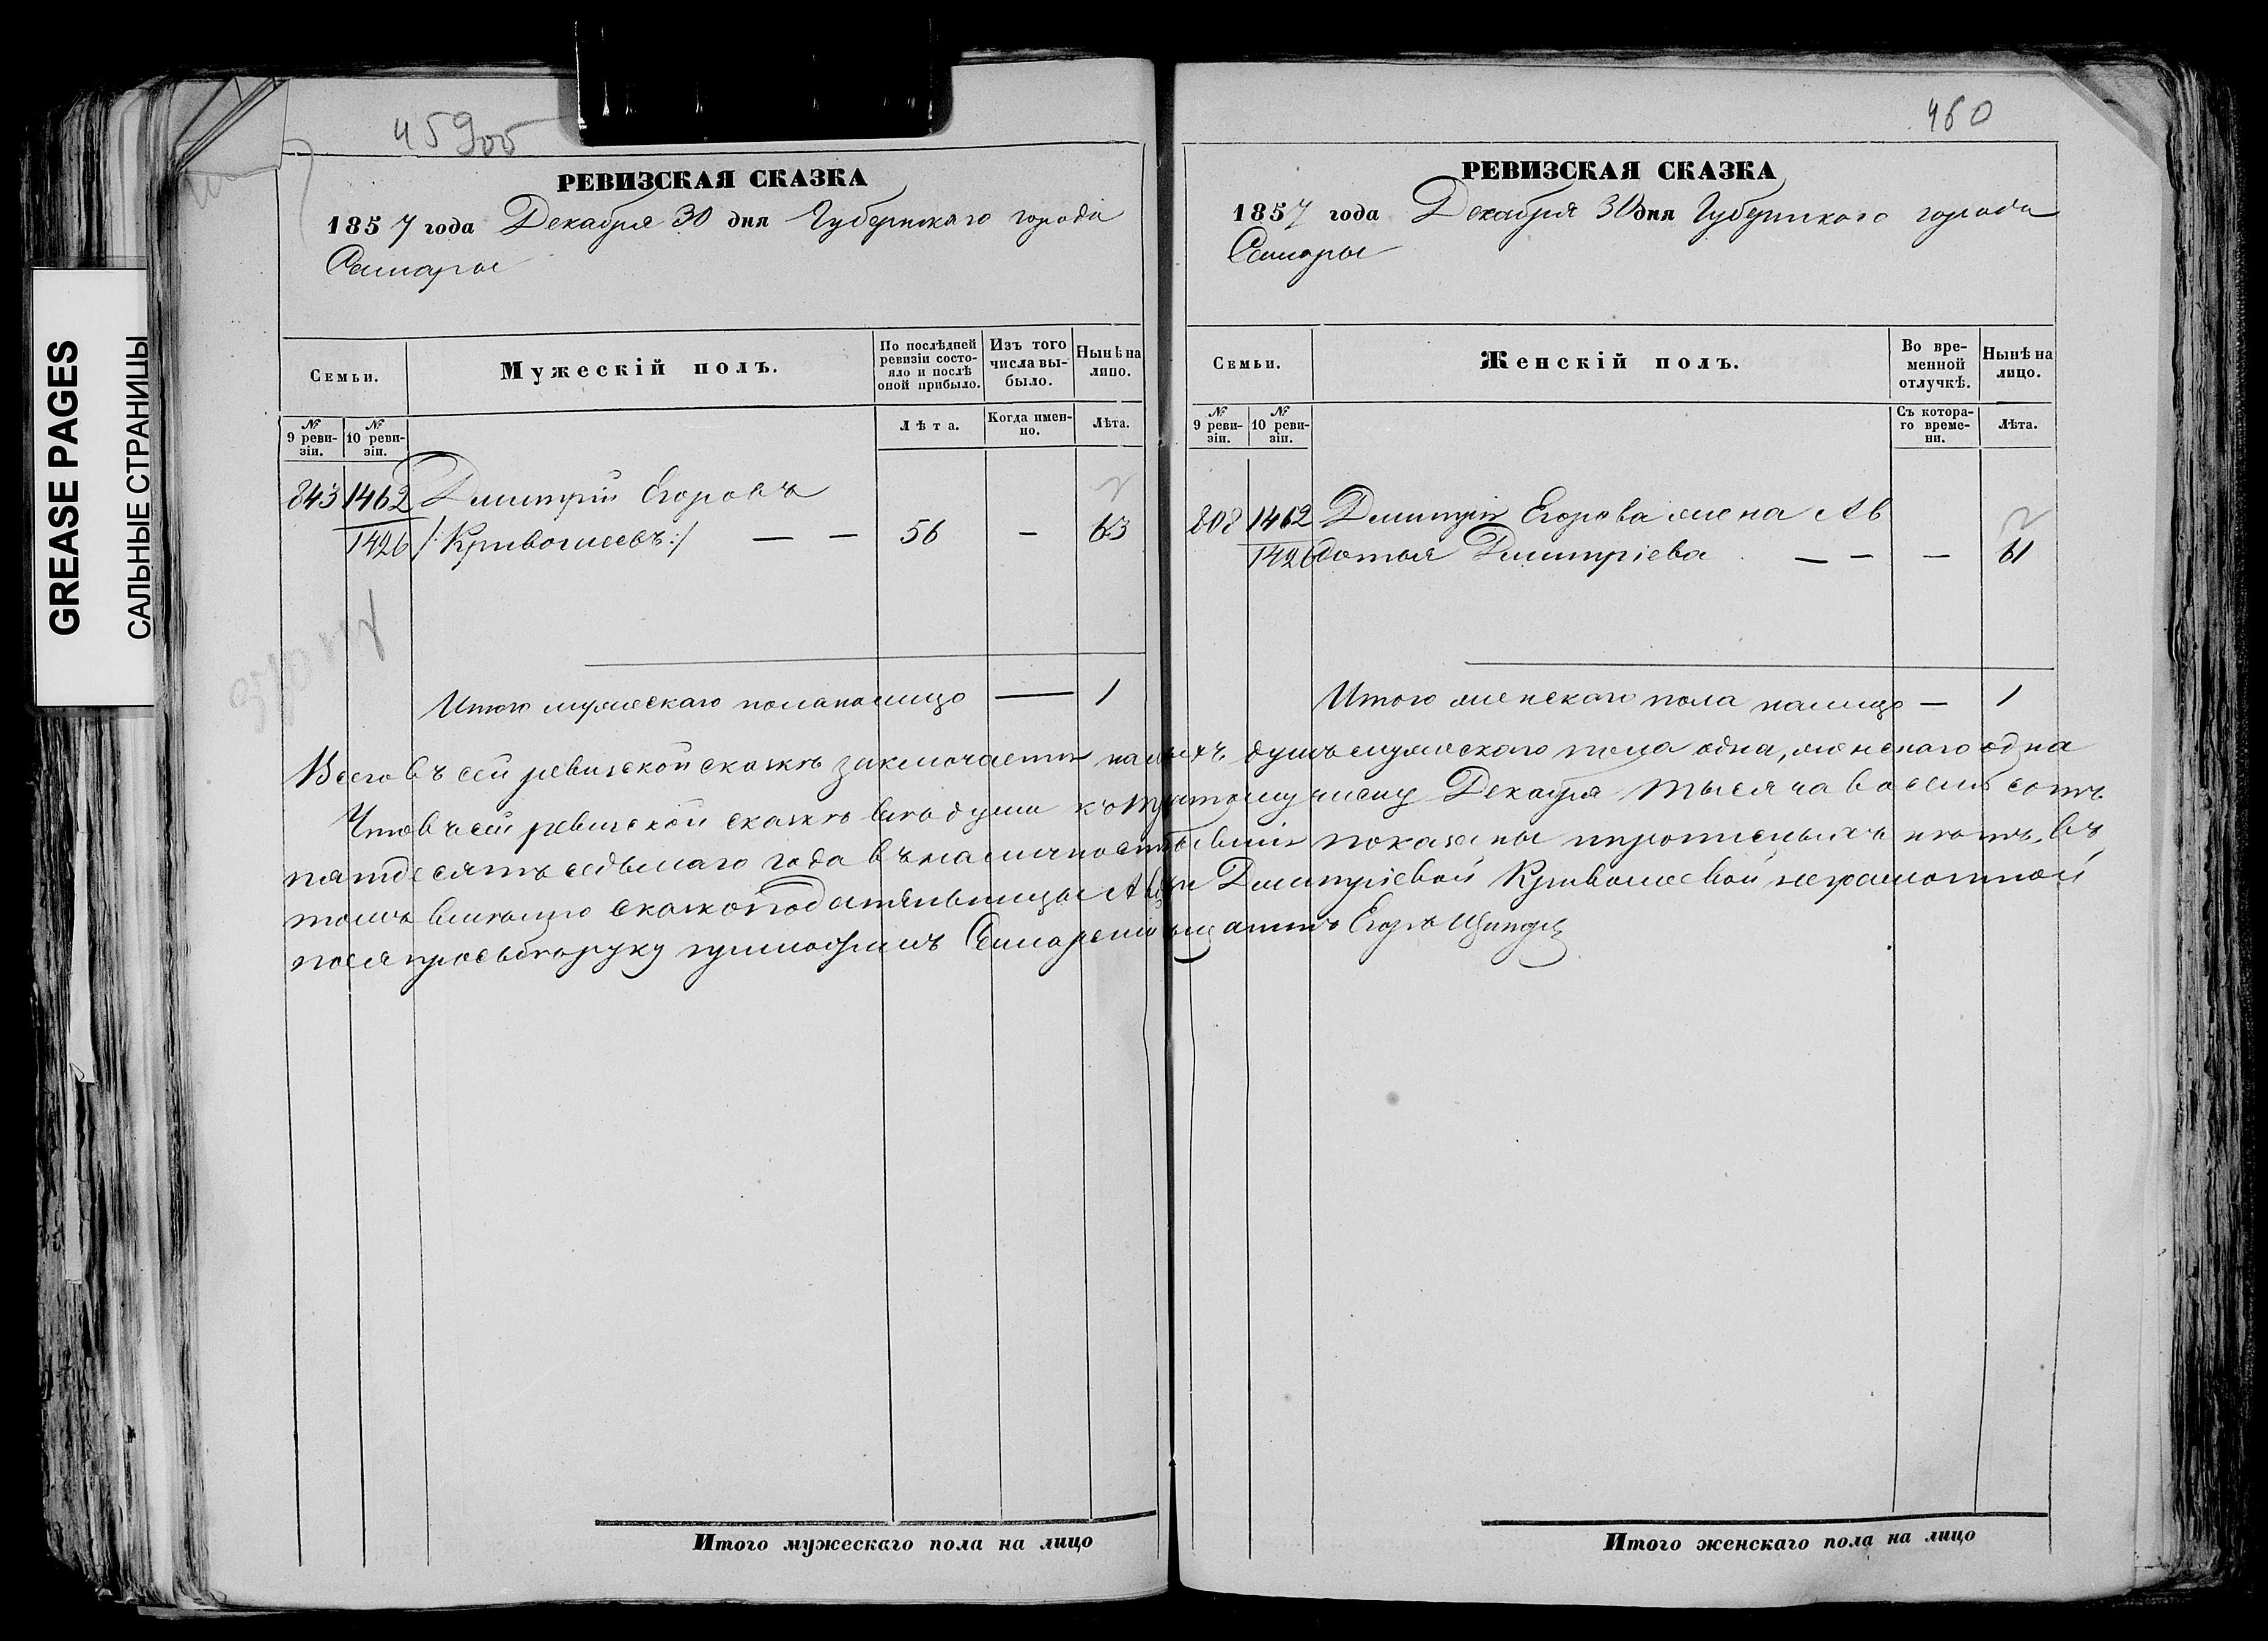 GREASE PAGES
САЛЬНЫЕ СТРАНИЦЫ
459об
РЕВИЗСКАЯ СКАЗКА
1857 года Декабря 30 дня Губернскаго города
Самары
Семьи.
Мужескій полъ.
По послѣдней ревизіи состояло и послѣ оной прибыло.
Изъ того числа выбыло.
Нынѣ на лицо.
№ 9 ревизіи.
№ 10 ревизіи.
Лѣта.
Когда именно.
Лѣта.
843 1462 Дмитрій Егоровъ
1426 /:Кривошеевъ:/ — — 56 — 63
Итого мужескаго пола налицо — 1
460
РЕВИЗСКАЯ СКАЗКА
1857 года Декабря 30 дня Губернскаго города
Самары
Семьи.
Женскій полъ.
Во временной отлучкѣ.
Нынѣ на лицо.
№ 9 ревизіи.
№ 10 ревизіи.
Съ котораго времени.
Лѣта.
808 1462 Дмитрія Егорова жена Ав
1426 дотья Дмитріева — — — 61
Итого женскаго пола налицо — 1
Всего въ сей ревизской сказкѣ заключается душъ мужескаго пола одна, женскаго одна
Что въ сей ревизской сказкѣ всѣ души къ числу Декабря тысяча восемь сотъ
пятдесятъ седьмаго года въ наличности показаны и прописныхъ нѣтъ, въ
томъ вмѣсто сказкоподательницы Дмитріевой Кривошеевой неграмотной
по ея просьбѣ руку приложилъ Самарскій мещанинъ Егоръ
Итого мужескаго пола на лицо
Итого женскаго пола на лицо